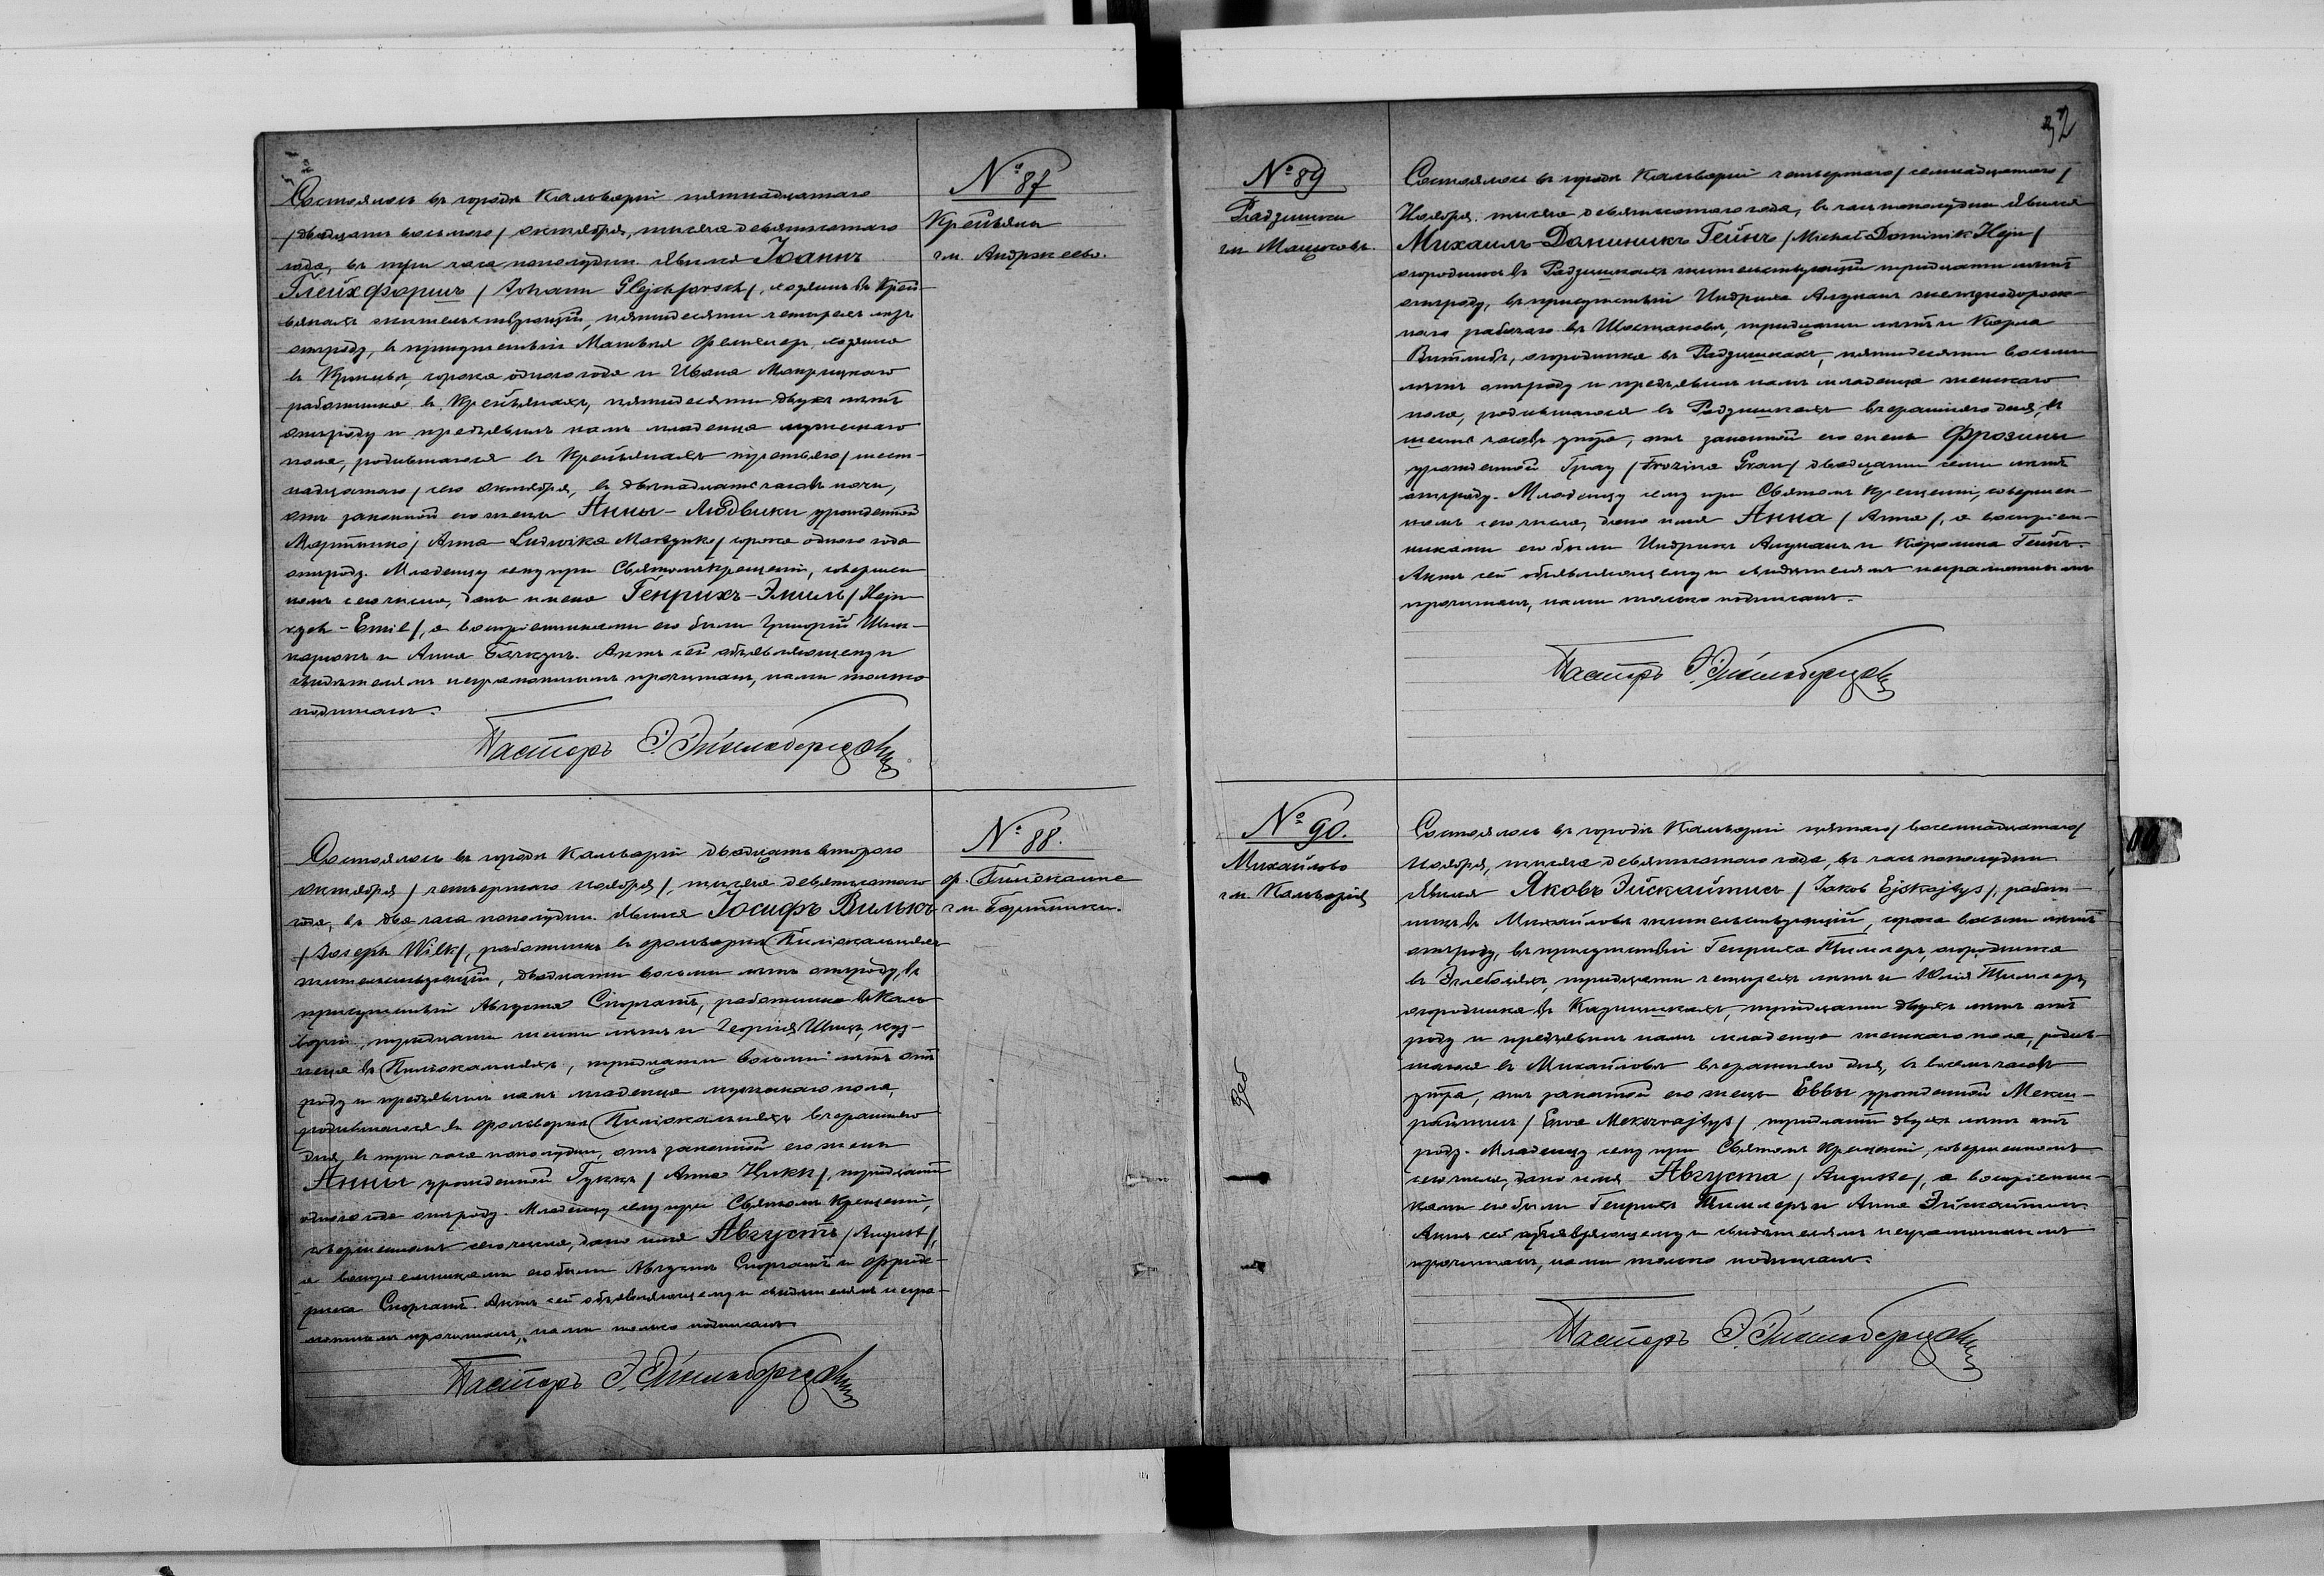 Состоялось въ городѣ Кальваріи пятнадцатаго
/двадцать восьмаго/ октября, тысяча девятисотаго
года, въ три часа пополудни. Явился Іоаннъ
Глейхфоршъ /Johann Glejchforsch/, хозяинъ въ Крей-
вянахъ жительствующій, пятидесяти четырехъ лѣтъ
отъ роду, въ присутствіи Матвея хозяина
въ сорока одного года и Ивана
работника в Крейвянахъ, пятидесяти двухъ лѣтъ
отъ роду и предъявилъ намъ младенца мужескаго
пола, родившагося въ Крейвянахъ третьяго /шест-
надцатаго/ сего октября, въ двѣнадцать часовъ ночи,
отъ законной его жены Анны-Людвики урожденной
/Anna Ludwika сорока одного года
отъ роду. Младенцу сему при Святомъ крещеніи, совершен-
номъ сего числа, даны имена Генрихъ-Эмиль /Hejn-
rych-Emil/, а воспріемниками его были Григорій
и Анна. Актъ сей объявляющему и
свидѣтелямъ неграмотнымъ прочитанъ, нами только
подписанъ.
Пасторъ Э.
№ 87
Крейвяны
гм. Андржеево.
Состоялось въ городѣ Кальваріи двадцать втораго
октября /четвертаго ноября/, тысяча девятисотаго
года, въ два часа пополудни. Явился Іосифъ Вилькъ
/Joseph Wilk/, работникъ въ фольваркѣ
жительствующій, двадцати восьми лѣтъ отъ роду, въ
присутствіи Августа работника въ Каль-
варіи, тридцати лѣтъ и Георгія куз-
неца въ тридцати восьми лѣтъ отъ
роду и предъявилъ намъ младенца мужескаго пола,
родившагося въ фольваркѣ вчерашняго
дня, въ три часа пополудни, отъ законной его жены
Анны урожденной /Anna тридцати
одного года отъ роду. Младенцу сему при Святомъ Крещеніи,
совершенномъ сего числа, дано имя Августъ /August/,
а воспріемниками его были Августъ и Фриде-
рика. Актъ сей объявляющему и свидѣтелямъ негра-
мотнымъ прочитанъ, нами только подписанъ.
Пасторъ Э.
№ 88.
ф.
гм.
32
№ 89
Радзишки
гм.
Состоялось въ городѣ Кальваріи четвертаго /семнадцатаго/
Ноября, тысяча девятисотаго года, въ часъ пополудни. Явился
Михаилъ-Доминикъ Гейнъ /Michał Dominik Hejn/
огородникъ въ Радзишкахъ жительствующій тридцати лѣтъ
отъ роду, въ присутствіи Индриха желѣзнодорож-
наго рабочаго въ тридцати лѣтъ и Карла
огородника въ Радзишкахъ, пятидесяти восьми
лѣтъ отъ роду и предъявилъ намъ младенца женскаго
пола, родившагося въ Радзишкахъ вчерашняго дня, въ
шесть часовъ утра, отъ законной его жены Фрозины
урожденной Грау /Frozina Grau/ двадцати семи лѣтъ
отъ роду. Младенцу сему при Святомъ Крещеніи, совершен-
номъ сего числа, дано имя Анна /Anna/, а воспріем-
никами его были Индрихъ и Каролина Гейнъ.
Актъ сей объявляющему и свидѣтелямъ неграмотнымъ
прочитанъ, нами только подписанъ.
Пасторъ Э.
№ 90.
Михайлово
гм. Кальварія
Состоялось въ городѣ Кальваріи пятаго /восемнадцатаго/
ноября, тысяча девятисотаго года, въ часъ пополудни
Явился Яковъ Эйскайтисъ /Jakob Ejskajtys/, работ-
никъ въ Михайловѣ жительствующій, сорока восьми лѣтъ
отъ роду, въ присутствіи Генриха огородника
въ тридцати четырехъ лѣтъ и Юлія
огородника въ тридцати двухъ лѣтъ отъ
роду и предъявилъ намъ младенца женскаго пола, родив-
шагося въ Михайловѣ вчерашняго дня, въ восемь часовъ
утра, отъ законной его жены Еввы урожденной
/Ewa тридцати двухъ лѣтъ отъ
роду. Младенцу сему при Святомъ Крещеніи, совершенномъ
сего числа, дано имя Августа /Auguste/, а воспріемни-
ками его были Генрихъ и Анна Эйскайтисъ.
Актъ сей объявляющему и свидѣтелямъ неграмотнымъ
прочитанъ, нами только подписанъ.
Пасторъ Э.